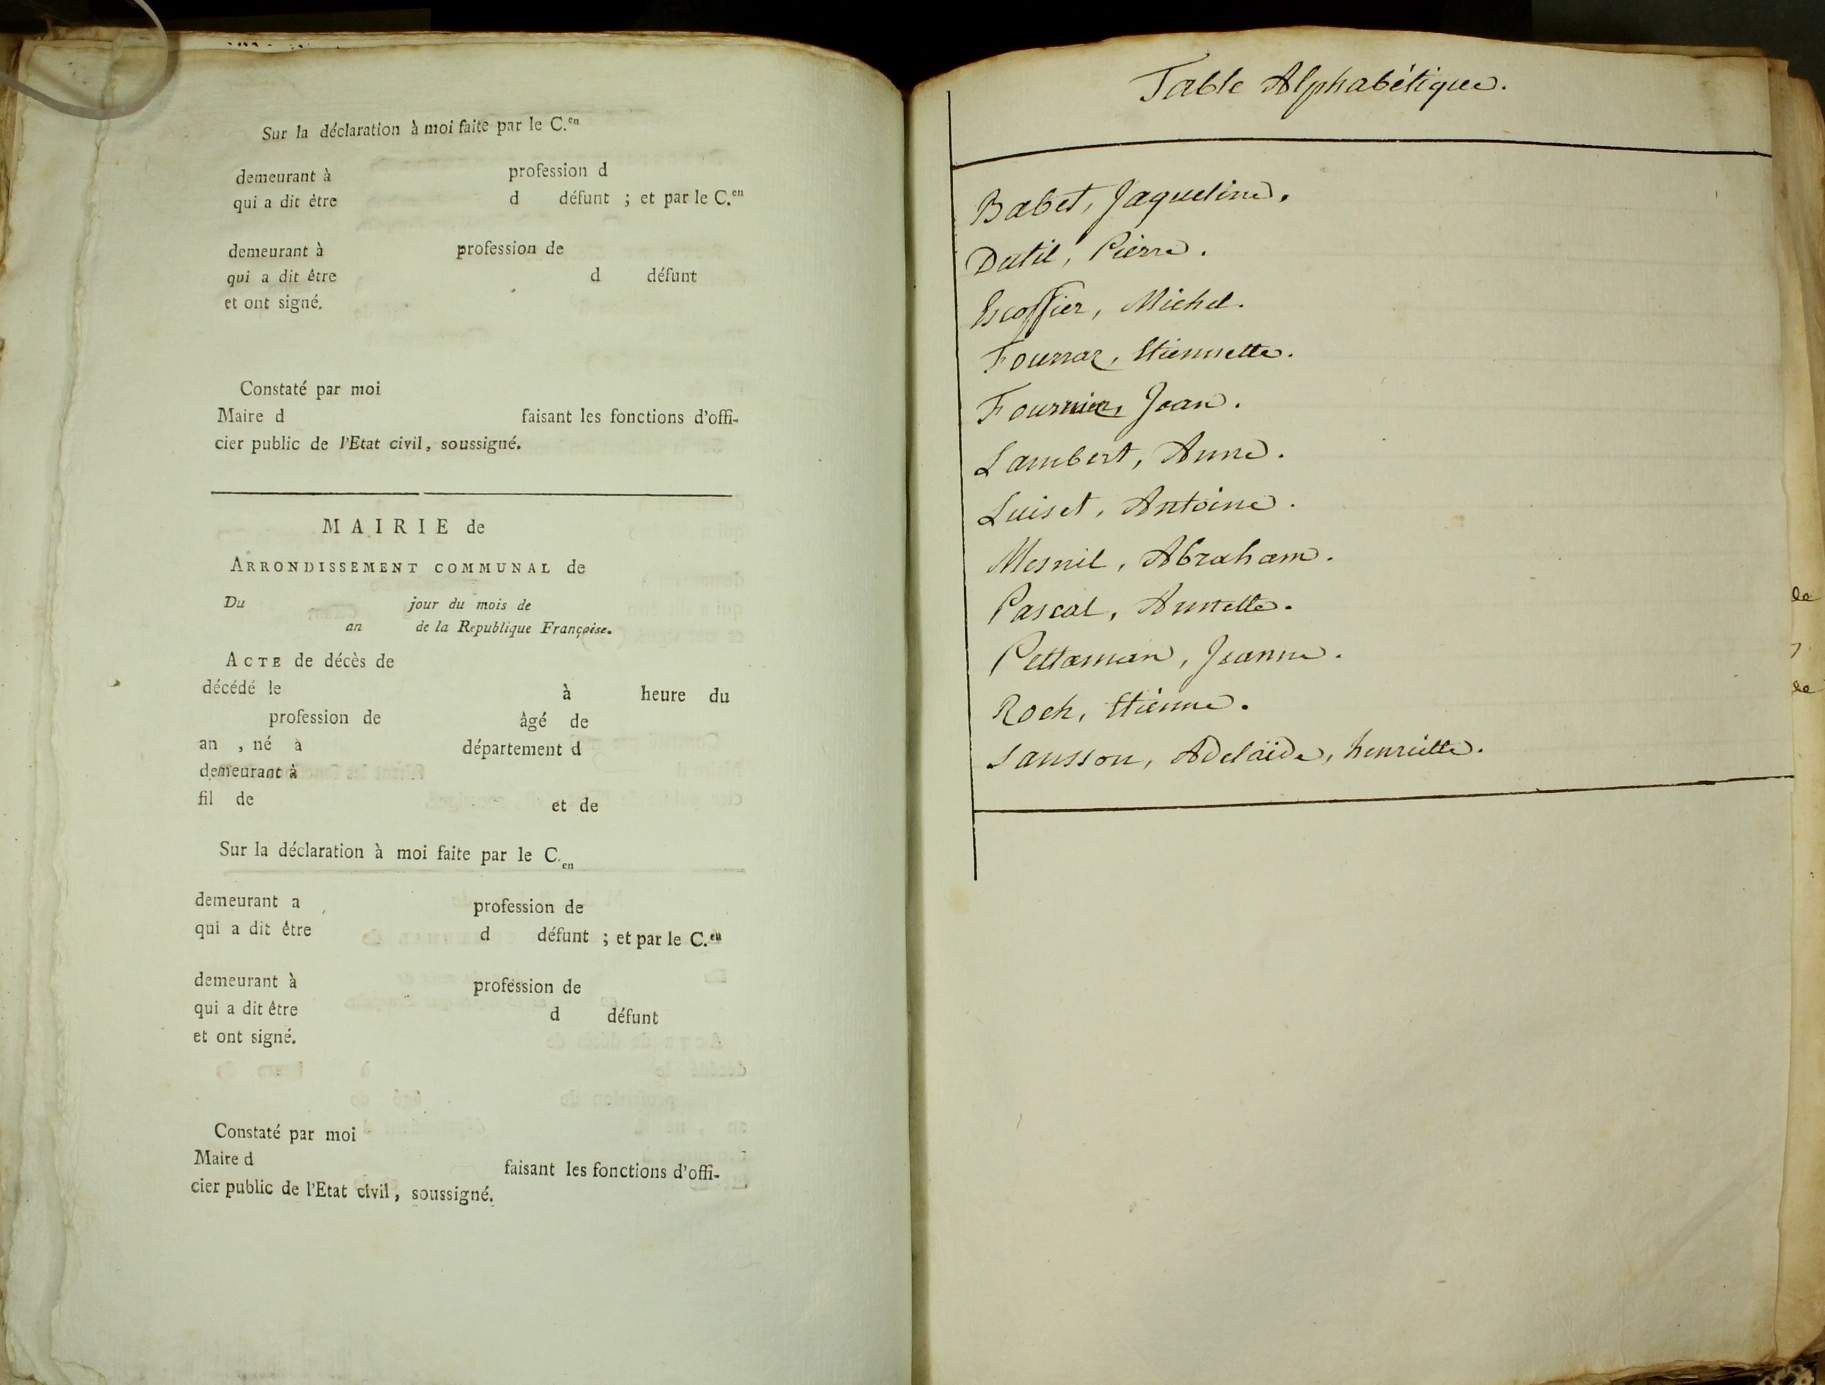 Sur la déclaration à moi faite par le C.en
demeurant à profession d
qui a dit être d défunt ; et par le C.en
demeurant à profession de
qui a dit être d défunt
et ont signé.
Constaté par moi
Maire d faisant les fonctions d'offi-
cier public de l'Etat civil, soussigné.
MAIRIE de
ARRONDISSEMENT COMMUNAL de
Du jour du mois de
an de la Republique Françoise.
ACTE de décès de
décédé le à heure du
profession de âgé de
an , né à département d
demeurant à
fil de et de
Sur la déclaration à moi faite par le C.en
demeurant a profession de
qui a dit être d défunt ; et par le C.en
demeurant à profession de
qui a dit être d défunt
et ont signé.
Constaté par moi
Maire d faisant les fonctions d'offi-
cier public de l'Etat civil, soussigné.
Table Alphabétique.
Babet, Jaqueline.
Dutil, Pierre.
Escoffier, Michel.
Fourrar, Etiennette.
Fournier, Jean.
Lambert, Anne.
Luiset, Antoine.
Mesnil, Abraham.
Pascal, Annette.
Pettaman, Jeanne.
Roch, Etienne.
Sansson, Adelaïde, henriette.